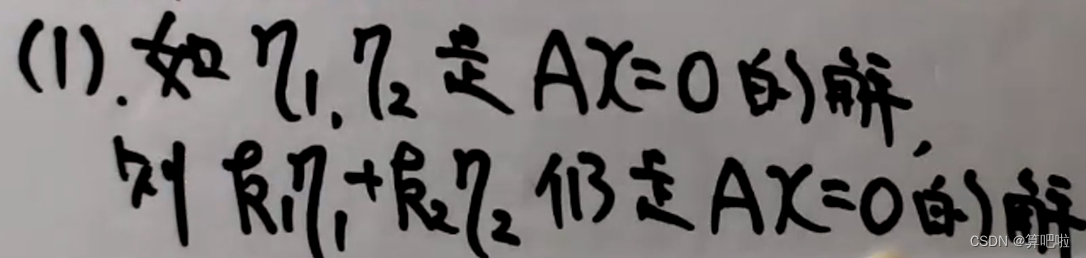 (1). 如 η₁, η₂ 是 AX=0 的解,
则 k₁η₁+k₂η₂ 仍是 AX=0 的解
CSDN @算吧啦